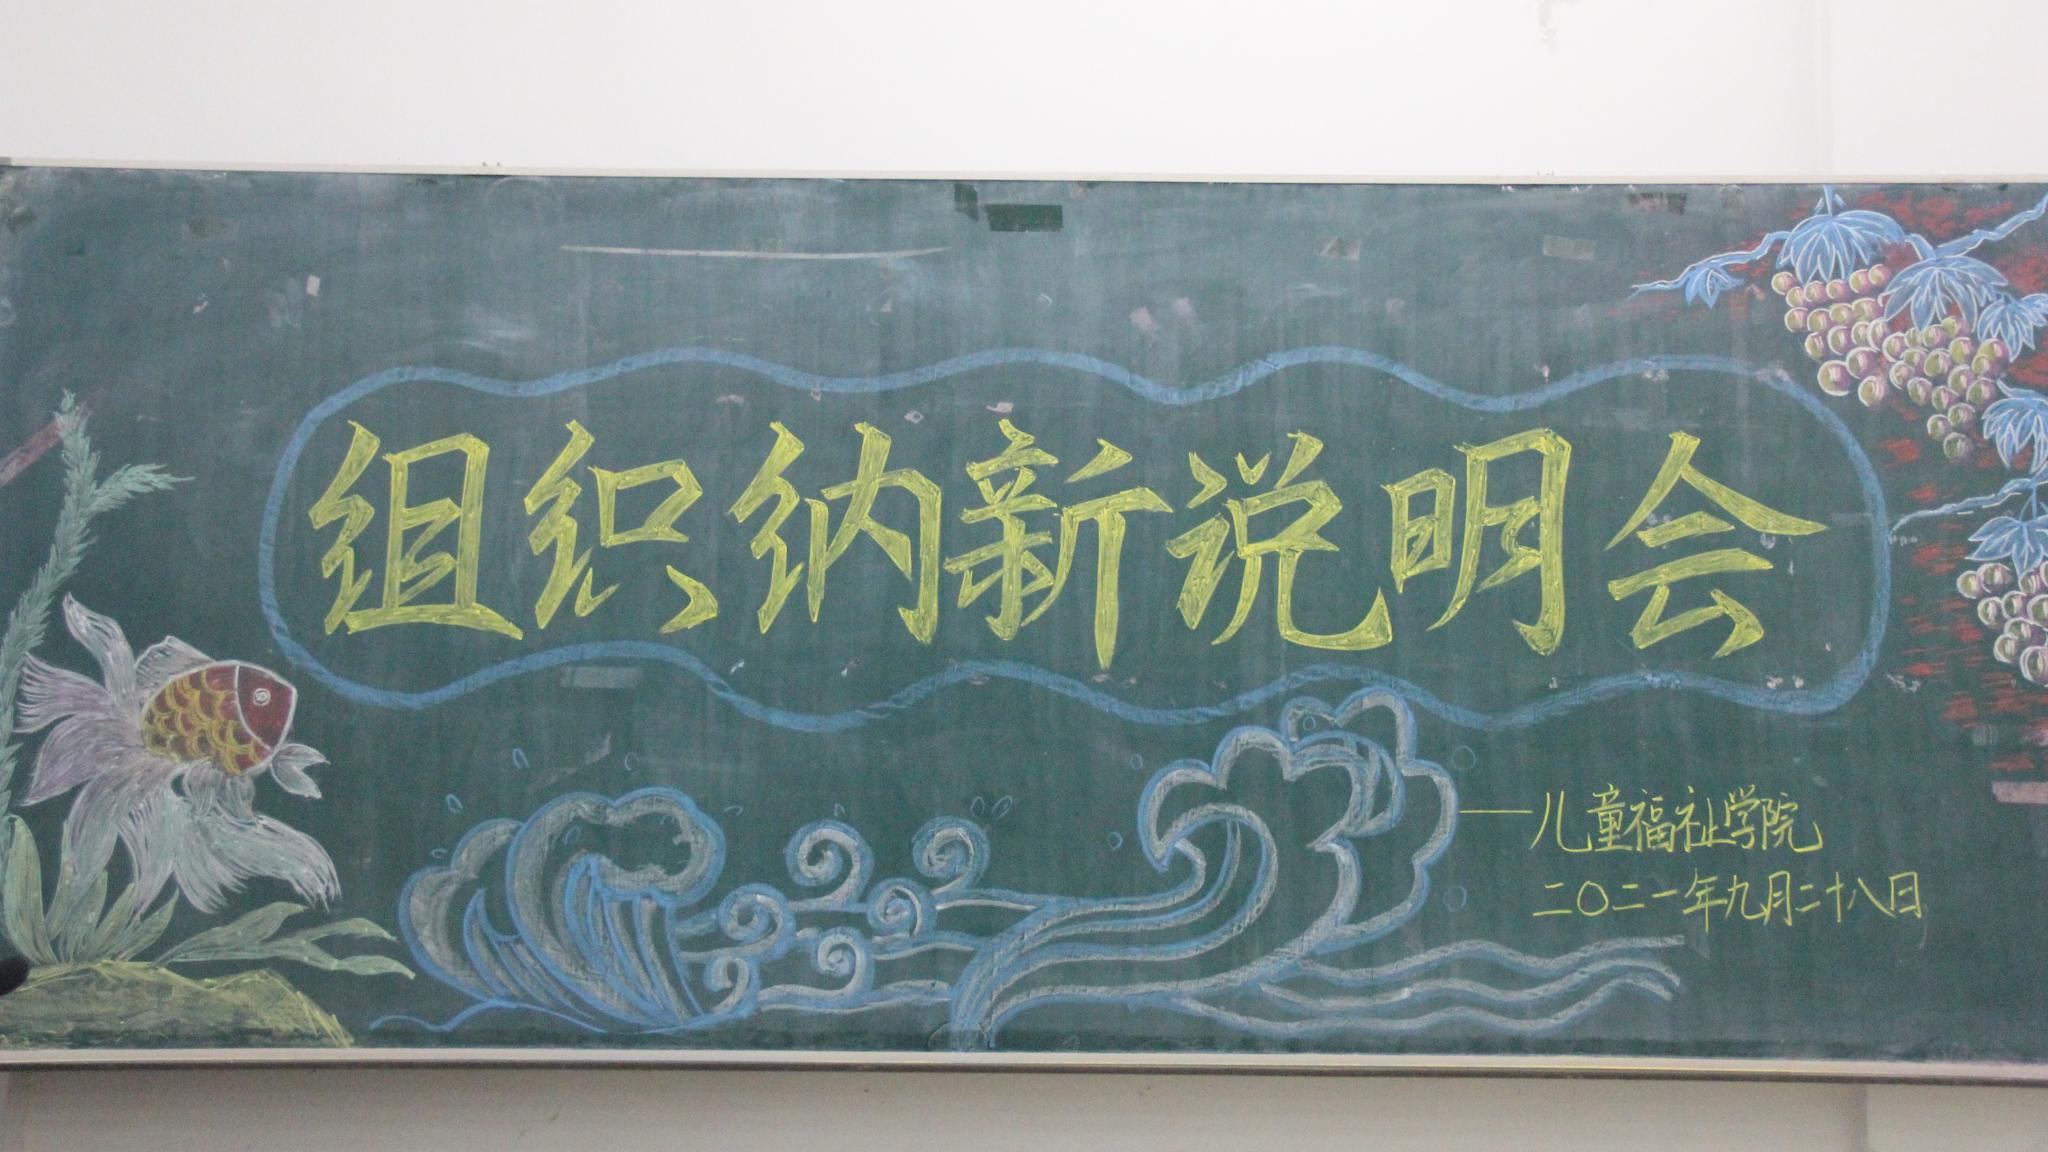 组织纳新说明会
——儿童福祉学院
二〇二一年九月二十八日